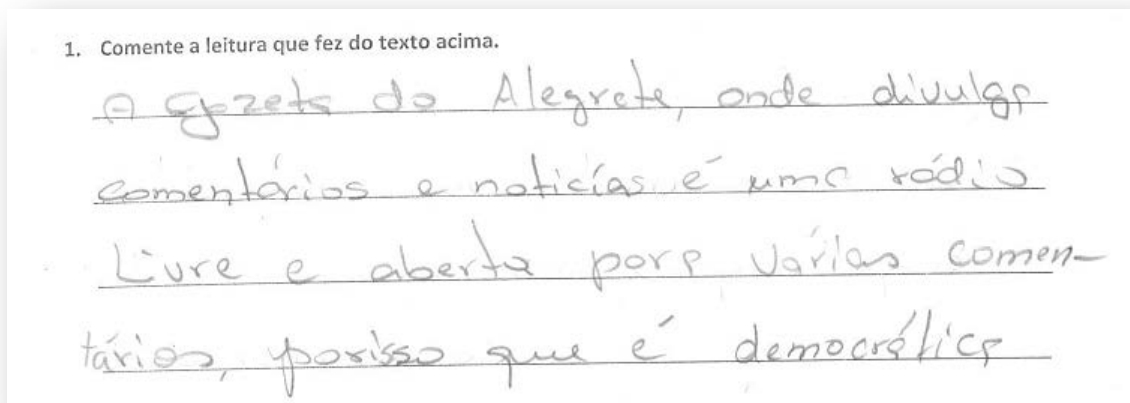 1. Comente a leitura que fez do texto acima.
A gazeta do Alegrete, onde divulga
comentários e notícias é uma rádio
Livre e aberta para várias comen-
tários, porisso que é democrática